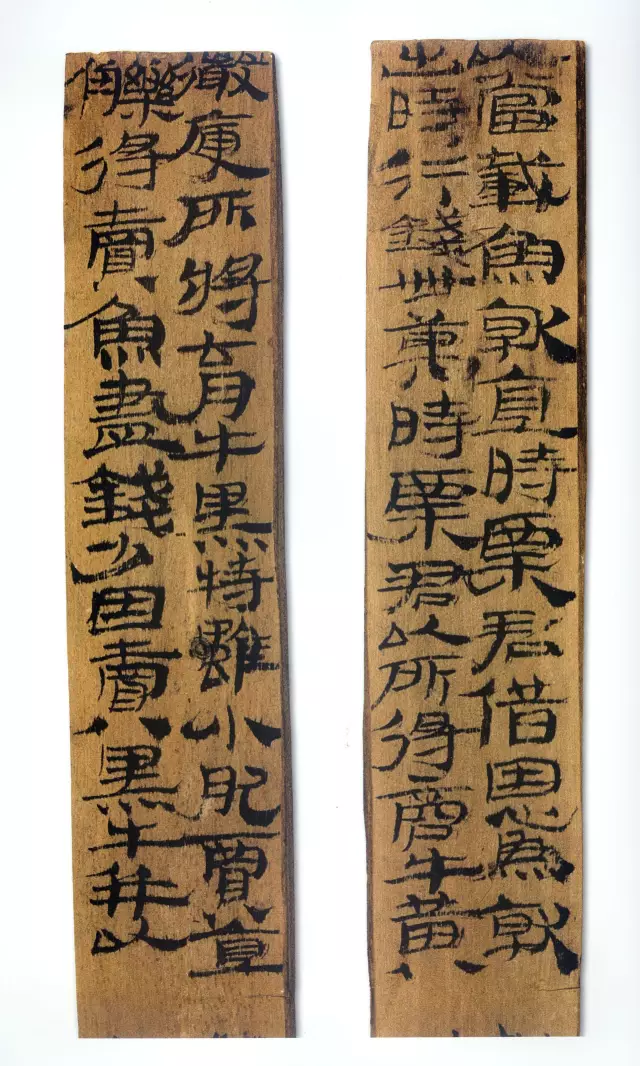 當載魚就直時粟君借恩為就
出時行錢卌萬時粟君以所得商牛黃
微庾所將育牛黑特雖小肥賈直
觻得賣魚盡錢少因賣黑牛并以